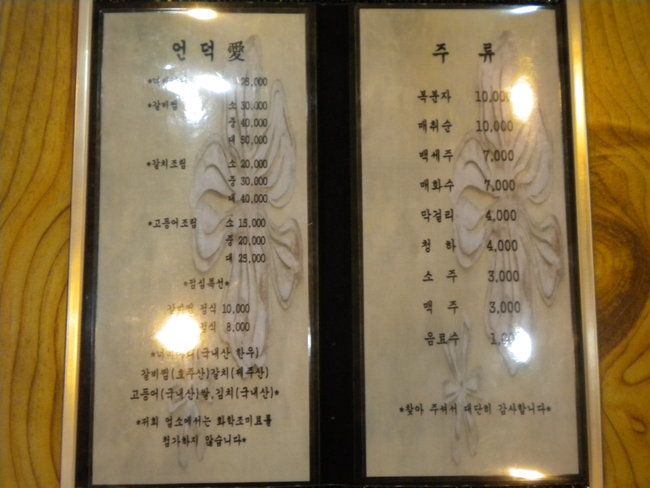 언덕愛
25,000
*갈비찜 소 30,000
중 40,000
대 50,000
*갈치조림 소 20,000
중 30,000
대 40,000
*고등어조림 소 15,000
중 20,000
대 25,000
*점심특선*
갈비찜 정식 10,000
정식 8,000
(국내산 한우)
갈비찜(호주산)갈치(제주산)
고등어(국내산)쌀,김치(국내산)*
*저희 업소에서는 화학조미료를
첨가하지 않습니다*
주 류
복분자 10,000
매취순 10,000
백세주 7,000
매화수 7,000
막걸리 4,000
청 하 4,000
소 주 3,000
맥 주 3,000
음료수
*찾아 주셔서 대단히 감사합니다*